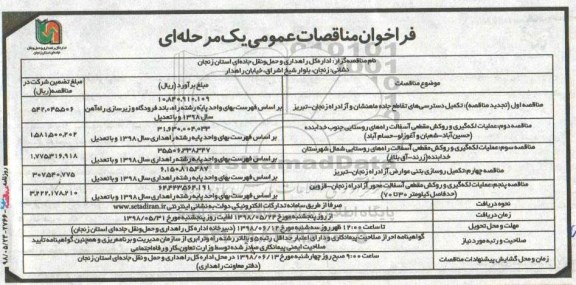 فراخوان مناقصات عمومی یک مرحله‌ای
نام مناقصه‌گزار: اداره کل راهداری و حمل و نقل جاده‌ای استان زنجان
نشانی: زنجان، بلوار شیخ اشراق، خیابان راهدار
موضوع مناقصات
مبلغ برآورد (ریال)
مبلغ تضمین شرکت در مناقصه (ریال)
مناقصه اول (تجدید مناقصه): تکمیل دسترسی‌های تقاطع جاده ماهنشان و آزادراه زنجان-تبریز
بر اساس فهرست بهای واحد پایه رشته راه، باند فرودگاه و زیرسازی راه‌آهن سال ۱۳۹۸ و با تعدیل
مناقصه دوم: عملیات لکه‌گیری و روکش مقطعی آسفالت راه‌های روستایی جنوب خدابنده
بر اساس فهرست بهای واحد پایه رشته راهداری سال ۱۳۹۸ و با تعدیل
۱.۵۸۱.۵۰۰.۲۰۲
مناقصه سوم: عملیات لکه‌گیری و روکش مقطعی آسفالت راه‌های روستایی شمال شهرستان خدابنده
بر اساس فهرست بهای واحد پایه رشته راهداری سال ۱۳۹۸ و با تعدیل
مناقصه چهارم: تکمیل روسازی بتنی عوارضی آزادراه زنجان-تبریز
۳۰۷.۵۴۰.۷۷۵
مناقصه پنجم: عملیات لکه‌گیری و روکش مقطعی آسفالت محور آزادراه زنجان-قزوین (حدفاصل کیلومتر ۳۰ تا ۷۰)
بر اساس فهرست بهای واحد پایه رشته راهداری سال ۱۳۹۸ و با تعدیل
۳.۲۲۲.۱۷۸.۲۱۰
نحوه دریافت
صرفا از طریق سامانه تدارکات الکترونیکی دولت به نشانی اینترنتی www.setadiran.ir
زمان دریافت
از روز پنجشنبه مورخ ۱۳۹۸/۰۵/۲۴ لغایت روز پنجشنبه مورخ ۱۳۹۸/۰۵/۳۱
مهلت و محل تحویل
تا ساعت ۱۴:۰۰ ظهر روز سه‌شنبه مورخ ۱۳۹۸/۰۶/۱۲ (دبیرخانه اداره کل راهداری و حمل و نقل جاده‌ای استان زنجان)
صلاحیت و رتبه مورد نیاز
گواهینامه احراز صلاحیت پیمانکاری و دارای اعتبار حداقل رتبه ۵ و بالاتر رشته راه و ترابری از سازمان مدیریت و برنامه‌ریزی و همچنین گواهینامه تایید صلاحیت ایمنی پیمانکاری صادر شده توسط وزارت تعاون کار و رفاه اجتماعی
زمان و محل گشایش پیشنهادات مناقصات
ساعت ۹:۰۰ صبح روز چهارشنبه مورخ ۱۳۹۸/۰۶/۱۳ در محل اداره کل راهداری و حمل و نقل جاده‌ای استان زنجان (دفتر معاونت راهداری)